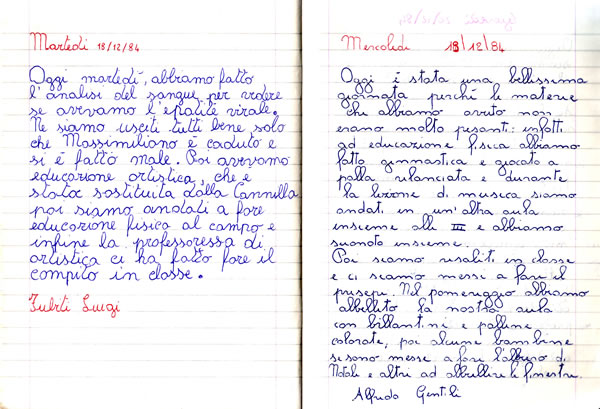 Martedì 18/12/84
Oggi martedì, abbiamo fatto
l'analisi del sangue per vedere
se avevamo l'epatite virale.
Ne siamo usciti tutti bene solo
che Massimiliano è caduto e
si è fatto male. Poi avevamo
educazione artistica, che e
stata sostituita dalla Cannilla
poi siamo andati a fare
educazione fisica al campo e
infine la professoressa di
artistica ci ha fatto fare il
compito in classe.
Luigi
Mercoledì 19/12/84
Oggi è stata una bellissima
giornata perché le materie
che abbiamo avuto non
erano molto pesanti: infatti
ad educazione fisica abbiamo
fatto ginnastica e giocato a
palla rilanciata e durante
la lezione di musica siamo
andati in un'altra aula
insieme alla III e abbiamo
suonato insieme.
Poi siamo risaliti in classe
e ci siamo messi a fare il
presepi. Nel pomeriggio abbiamo
abbellito la nostra aula
con brillantini e palline
colorate, poi alcune bambine
si sono messe a fare l'albero di
Natale e altri ad abbellire le finestre.
Alfredo Gentili